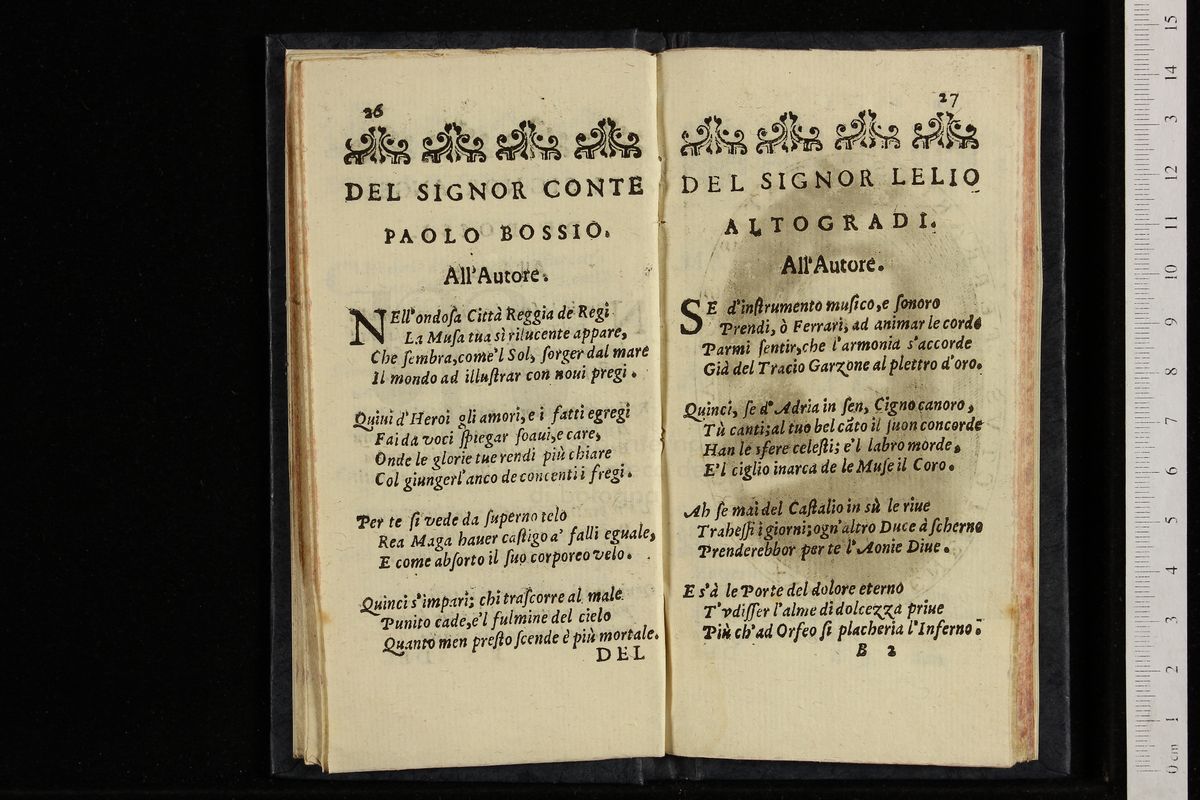 26
DEL SIGNOR CONTE
PAOLO BOSSIO.
All'Autore.
NEll'ondoſa Città Reggia de Regi
La Muſa tua sì rilucente appare,
Che ſembra,come'l Sol, ſorger dal mare
Il mondo ad illuſtrar con noui pregi.
Quiui d'Heroi gli amori,e i fatti egregi
Fai da voci ſpiegar ſoaui,e care,
Onde le glorie tue rendi più chiare
Col giunger l'anco de concenti i fregi.
Per te ſi vede da ſuperno telo
Rea Maga hauer caſtigo a' falli eguale,
E come abſorto il ſuo corporeo velo.
Quinci s'impari; chi traſcorre al male
Punito cade,e'l fulmine del cielo
Quanto men preſto ſcende è più mortale.
DEL
27
DEL SIGNOR LELIO
ALTOGRADI.
All'Autore.
SE d'inſtrumento muſico,e ſonoro
Prendi, ò Ferrari, ad animar le corde
Parmi ſentir,che l'armonia s'accorde
Già del Tracio Garzone al plettro d'oro.
Quinci, ſe d'Adria in ſen, Cigno canoro,
Tù canti;al tuo bel cãto il ſuon concorde
Han le sfere celeſti; e'l labro morde,
E'l ciglio inarca de le Muſe il Coro.
Ah ſe mai del Caſtalio in sù le riue
Traheſſi i giorni;ogn'altro Duce à ſcherno
Prenderebbor per te l'Aonie Diue.
E s'à le Porte del dolore eterno
T'vdiſſer l'alme di dolcezza priue
Più ch'ad Orfeo ſi placheria l'Inferno.
B 2
0 cm 1 2 3 4 5 6 7 8 9 10 11 12 3 14 15